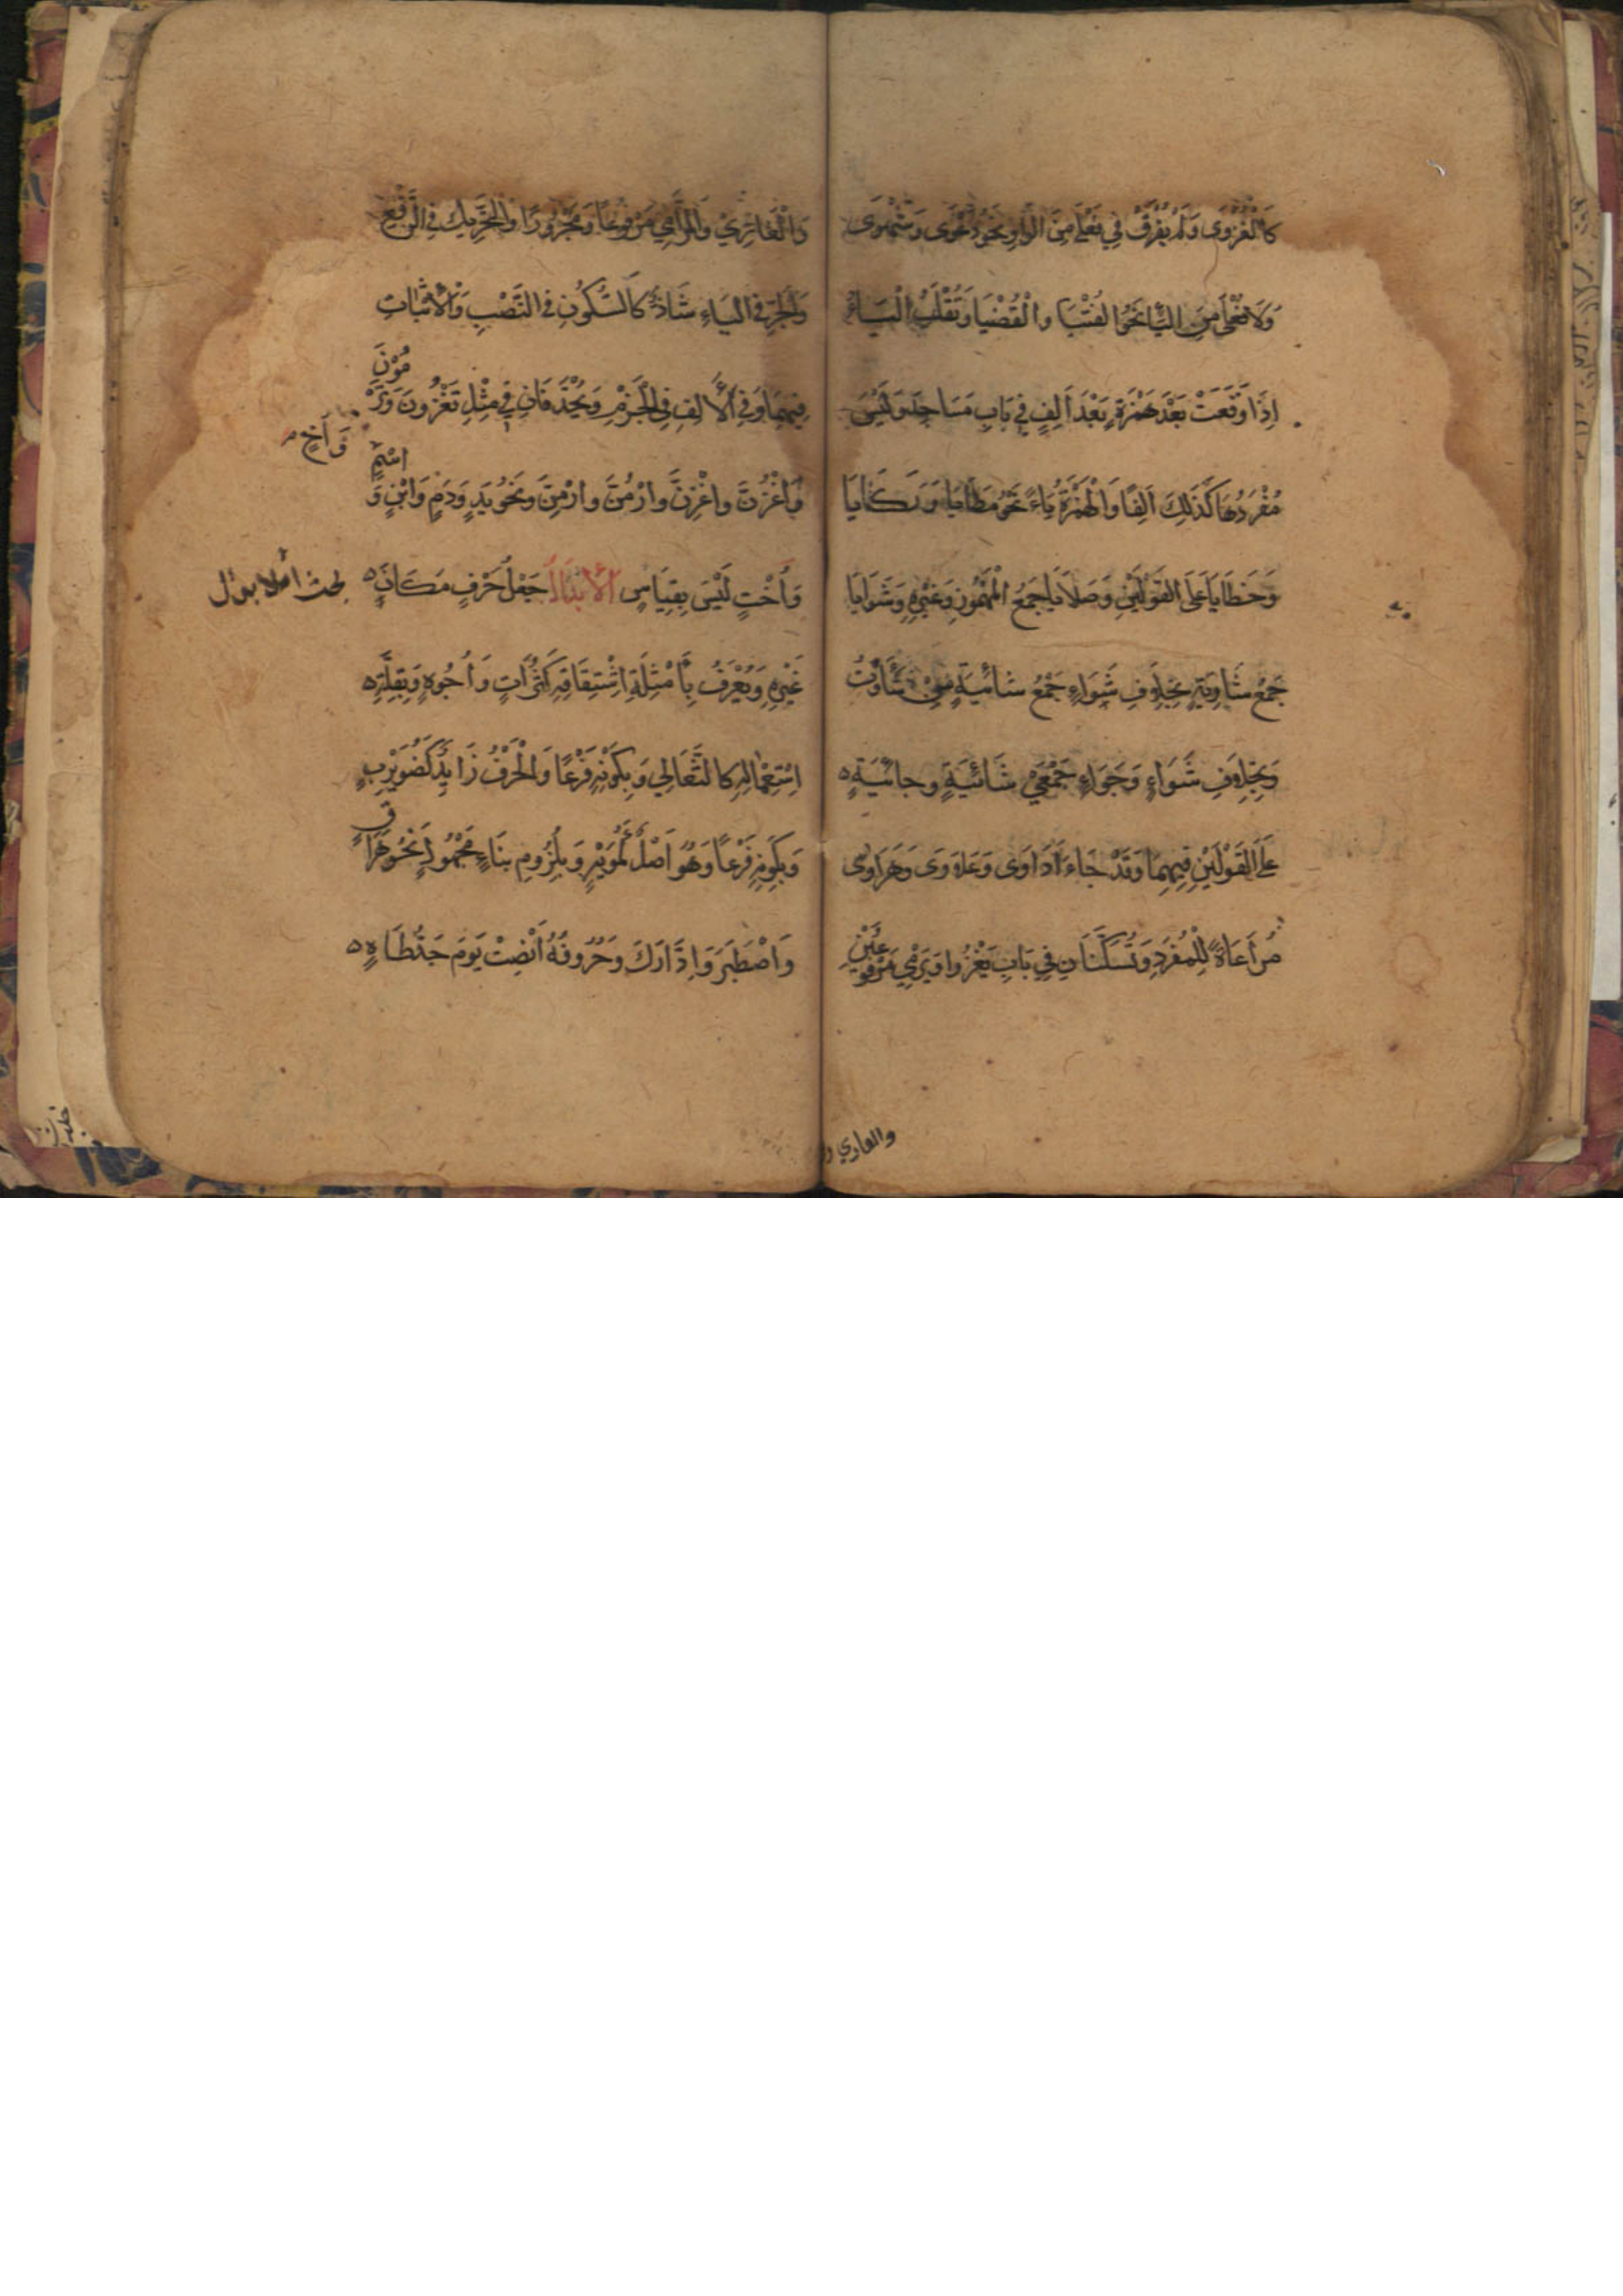 كَالْغُزْوَى وَلَمْ يُفْرَقْ فِي فَعْلَى مِنَ الْوَاوِ نَحْوُ دَعْوَى وَشَهْوَى
وَلَا فُعْلَى مِنَ الْيَاءِ نَحْوُ الْفُتْيَا وَالْقُضْيَا وَتُقْلَبُ الْيَاءُ
إِذَا وَقَعَتْ بَعْدَ هَمْزَةٍ بَعْدَ أَلِفٍ فِي بَابِ مَسَاجِدَ وَلَيْسَ
مُفْرَدُهَا كَذَلِكَ أَلِفًا وَالْهَمْزَةُ يَاءً نَحْوُ مَطَايَا وَرَكَايَا
وَخَطَايَا عَلَى الْقَوْلَيْنِ وَصَلَايَا جَمْعُ الْمَهْمُوزِ وَغَيْرِهِ وَشَوَايَا
جَمْعُ شَاوِيَةٍ بِخِلَافِ شَوَاءٍ جَمْعُ شَائِيَةٍ مِنْ شَأَوْتُ
وَبِخِلَافِ شَوَاءٍ وَجَوَاءٍ جَمْعَيْ شَائِيَةٍ وَجَائِيَةٍ
عَلَى الْقَوْلَيْنِ فِيهِمَا وَقَدْ جَاءَ أَدَاوَى وَعَلَاوَى وَهَرَاوَى
مُرَاعَاةً لِلْمُفْرَدِ وَتُسَكَّنَانِ فِي بَابِ يَغْزُوا وَيَرْمِي مَرْفُوعَيْنِ
والغازي و
وَالْغَازِيْ وَالرَّامِي مَرْفُوعًا وَمَجْرُورًا وَالتَّحْرِيكُ فِي الرَّفْعِ
وَالْجَرِّ فِي الْيَاءِ شَاذٌّ كَالسُّكُونِ فِي النَّصْبِ وَالْإِثْبَاتِ
فِيهِمَا وَفِي الْأَلِفِ فِي الْجَزْمِ وَيُحْذَفَانِ فِي مِثْلِ تَغْزُونَ وَتَرْمُوْنَ
وَاغْزُنَّ وَاغْزِنَّ وَارْمُنَّ وَارْمِنَّ وَنَحْوُ يَدٍ وَدَمٍ وَابْنٍ وَاسْمٍ
وَأَخٍ
وَأُخْتٍ لَيْسَ بِقِيَاسٍ الْإِبْدَالُ جَعْلُ حَرْفٍ مَكَانَ
غَيْرِهِ وَيُعْرَفُ بِأَمْثِلَةِ اشْتِقَاقِهِ كَتُرَاثٍ وَأُجُوهٍ وَبِقِلَّةِ
اسْتِعْمَالِهِ كَالثَّعَالِي وَبِكَوْنِهِ فَرْعًا وَالْحَرْفُ زَائِدٌ كَضُوَيْرِبٍ
وَبِكَوْنِهِ فَرْعًا وَهُوَ أَصْلٌ كَمُوَيْهٍ وَبِلُزُومِ بِنَاءٍ مَجْهُولٍ نَحْوُ هَرَاقَ
وَاصْطَبَرَ وَادَّارَكَ وَحُرُوفُهُ أَنْصَتْ يَوْمَ جَدُّ طَاهٍ